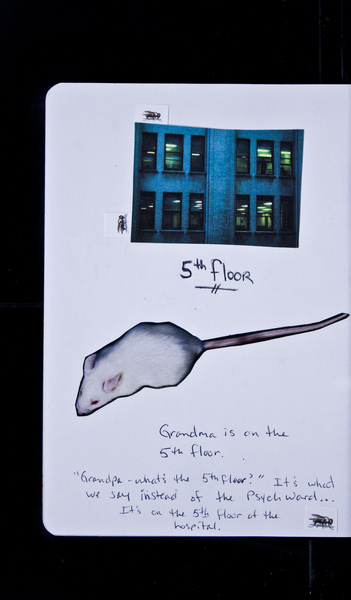 5th floor
Grandma is on the
5th floor.
"Grandpa - what's the 5th floor?" It's what
we say instead of the Psych Ward...
It's on the 5th floor of the
hospital.